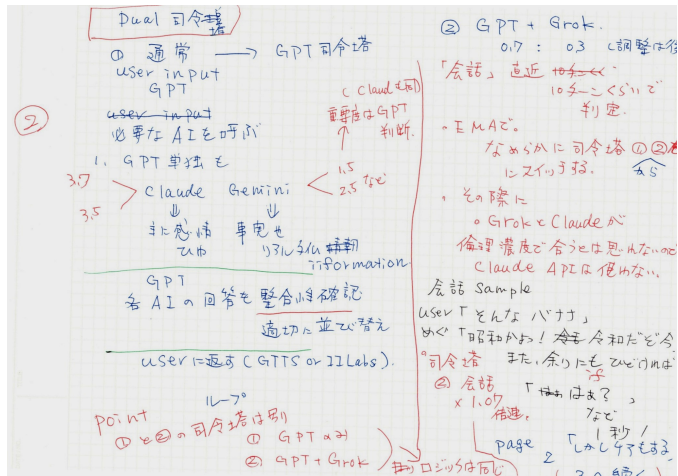 Dual 司令塔
① 通常 → GPT司令塔
user input
GPT
user input
必要なAIを呼ぶ
②
1. GPT単独も
(Claudeも同
重要度はGPT
判断.
3.7
3.5
Claude Gemini
1.5
2.5 など
主に感情 事実や
ひゆ リアルタイム
information
GPT
各AIの回答を整合性確認
適切に並び替え
userに返す(GTTS or 11Labs).
ループ
point
①と②の司令塔は別
① GPTのみ
② GPT + Grok
ロジックは同じ
② GPT + Grok.
0.7 : 03 (調整は後
「会話」直近
10ターンくらいで
判定.
・EMAで。
なめらかに司令塔①②
から
にスイッチする.
・その際に
GrokとClaudeが
倫理濃度で合うとは思れないので
Claude APIは使わない.
会話 Sample
user「そんなバナナ」
めぐ「昭和かよ! 令和だぞ今
また、余りにもひどければ
司令塔
② 会話
× 1.07
倍速.
if
「はぁ? 」
など
1秒!
page 2